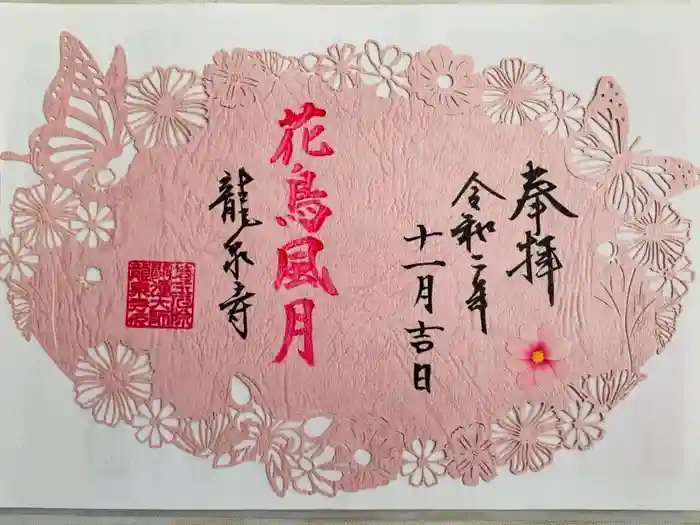 奉拝
令和二年
十一月吉日
花鳥風月
龍泉寺